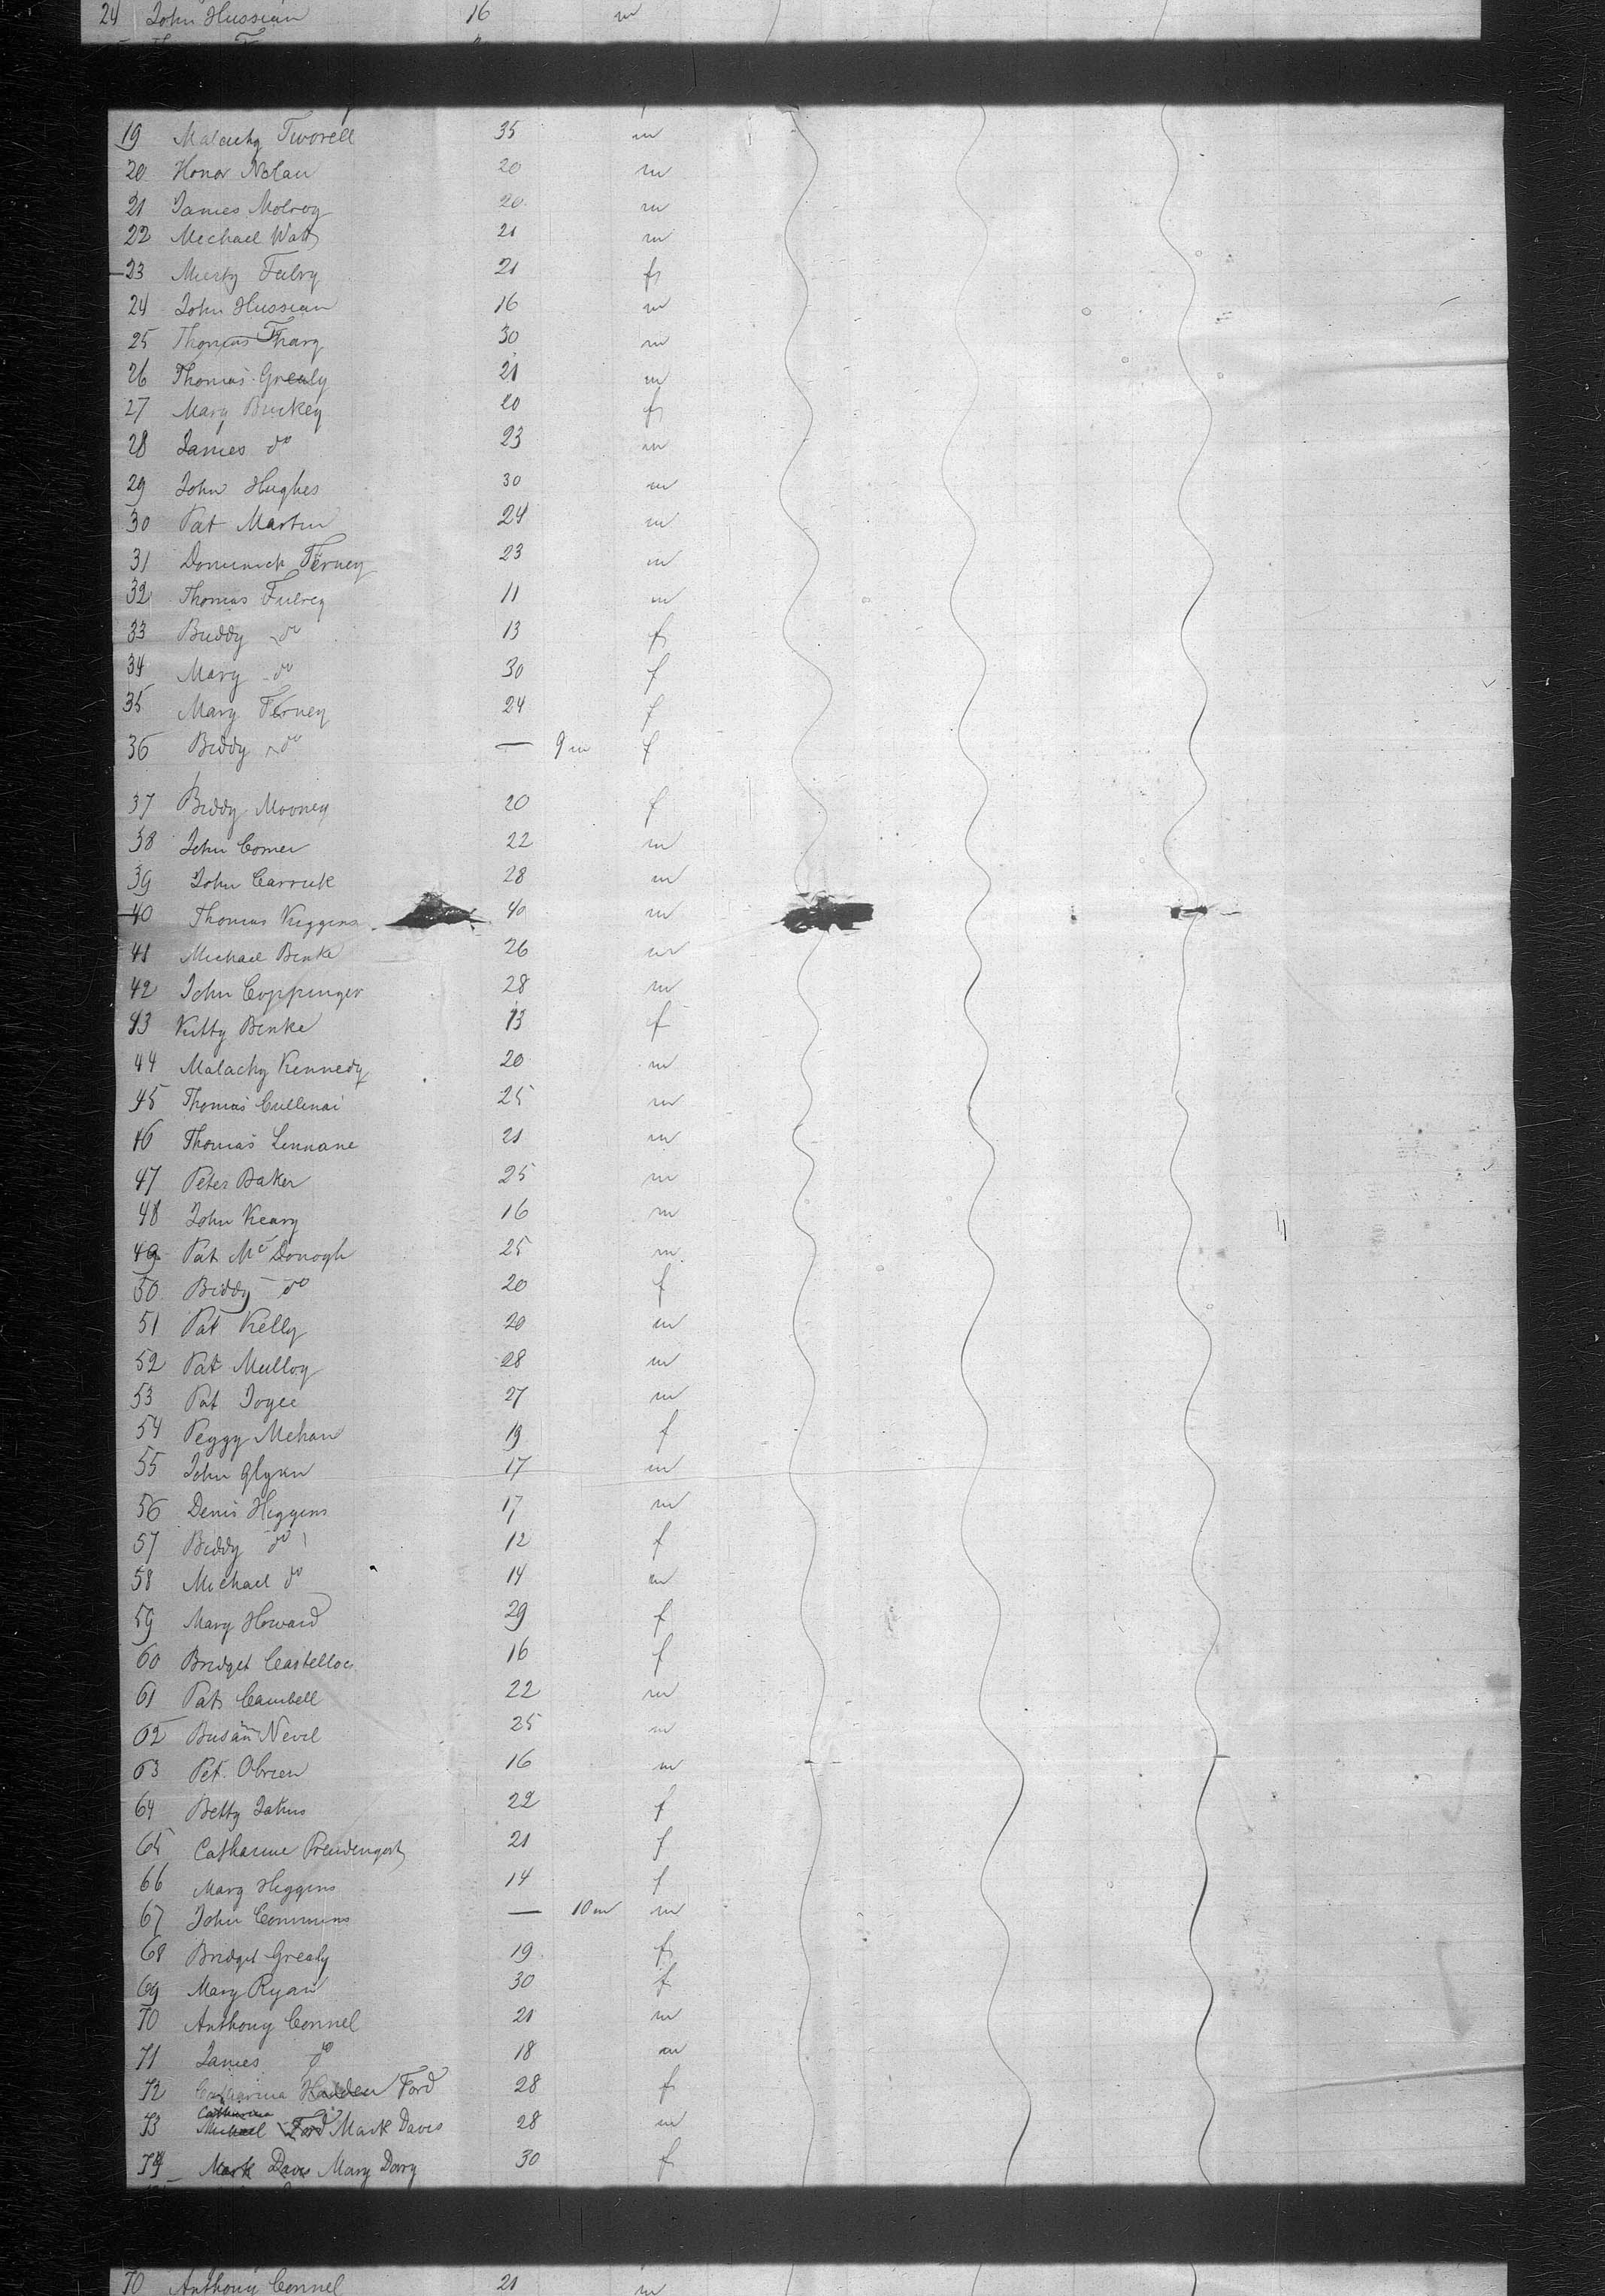 24 John Hussian 16 m
19 Malachy Tworell 35 m
20 Honor Nolan 20 m
21 James Molroy 20 m
22 Mechael Watt 21 m
23 Murty 21 f
24 John Hussian 16 m
25 Thomas 30 m
26 Thomas Grealy 21 m
27 Mary Buckey 20 f
28 James do 23 m
29 John Hughes 30 m
30 Pat Martin 24 m
31 Dominick Terney 23 m
32 Thomas 11 m
33 Biddy do 13 f
34 Mary do 30 f
35 Mary Terney 24 f
36 Biddy do — 9 m f
37 Biddy Mooney 20 f
38 John Comer 22 m
39 John Carrick 28 m
40 Thomas Kiggins 40 m
41 Michael Binke 26 m
42 John Coppinger 28 m
43 Kitty Binke 13 f
44 Malachy Kennedy 20 m
45 Thomas Cullinai 25 m
46 Thomas Linnane 21 m
47 Peter Baker 25 m
48 John Keary 16 m
49 Pat Mc Donogh 25 m
50 Biddy do 20 f
51 Pat Kelly 20 m
52 Pat Mulloy 28 m
53 Pat Joyce 27 m
54 Peggy Mehan 19 f
55 John Glynn 17 m
56 Denis Higgins 17 m
57 Biddy do 12 f
58 Michael do 14 m
59 Mary Howard 29 f
60 Bridget Castelloe 16 f
61 Pat Cambell 22 m
62 Nevil 25 m
63 Pet. Obrien 16 m
64 Betty Jakins 22 f
65 Catharine Prendengast 21 f
66 Mary Higgins 14 f
67 John Commins — 10 m m
68 Bridget Grealy 19 f
69 Mary Ryan 30 f
70 Anthony Connel 21 m
71 James do 18 m
72 Catharina Hadden Ford 28 f
Catharina
73 Michael Ford Mark Davis 28 m
74 Mark Davis Mary Davy 30 f
70 Anthony Connel 21 m